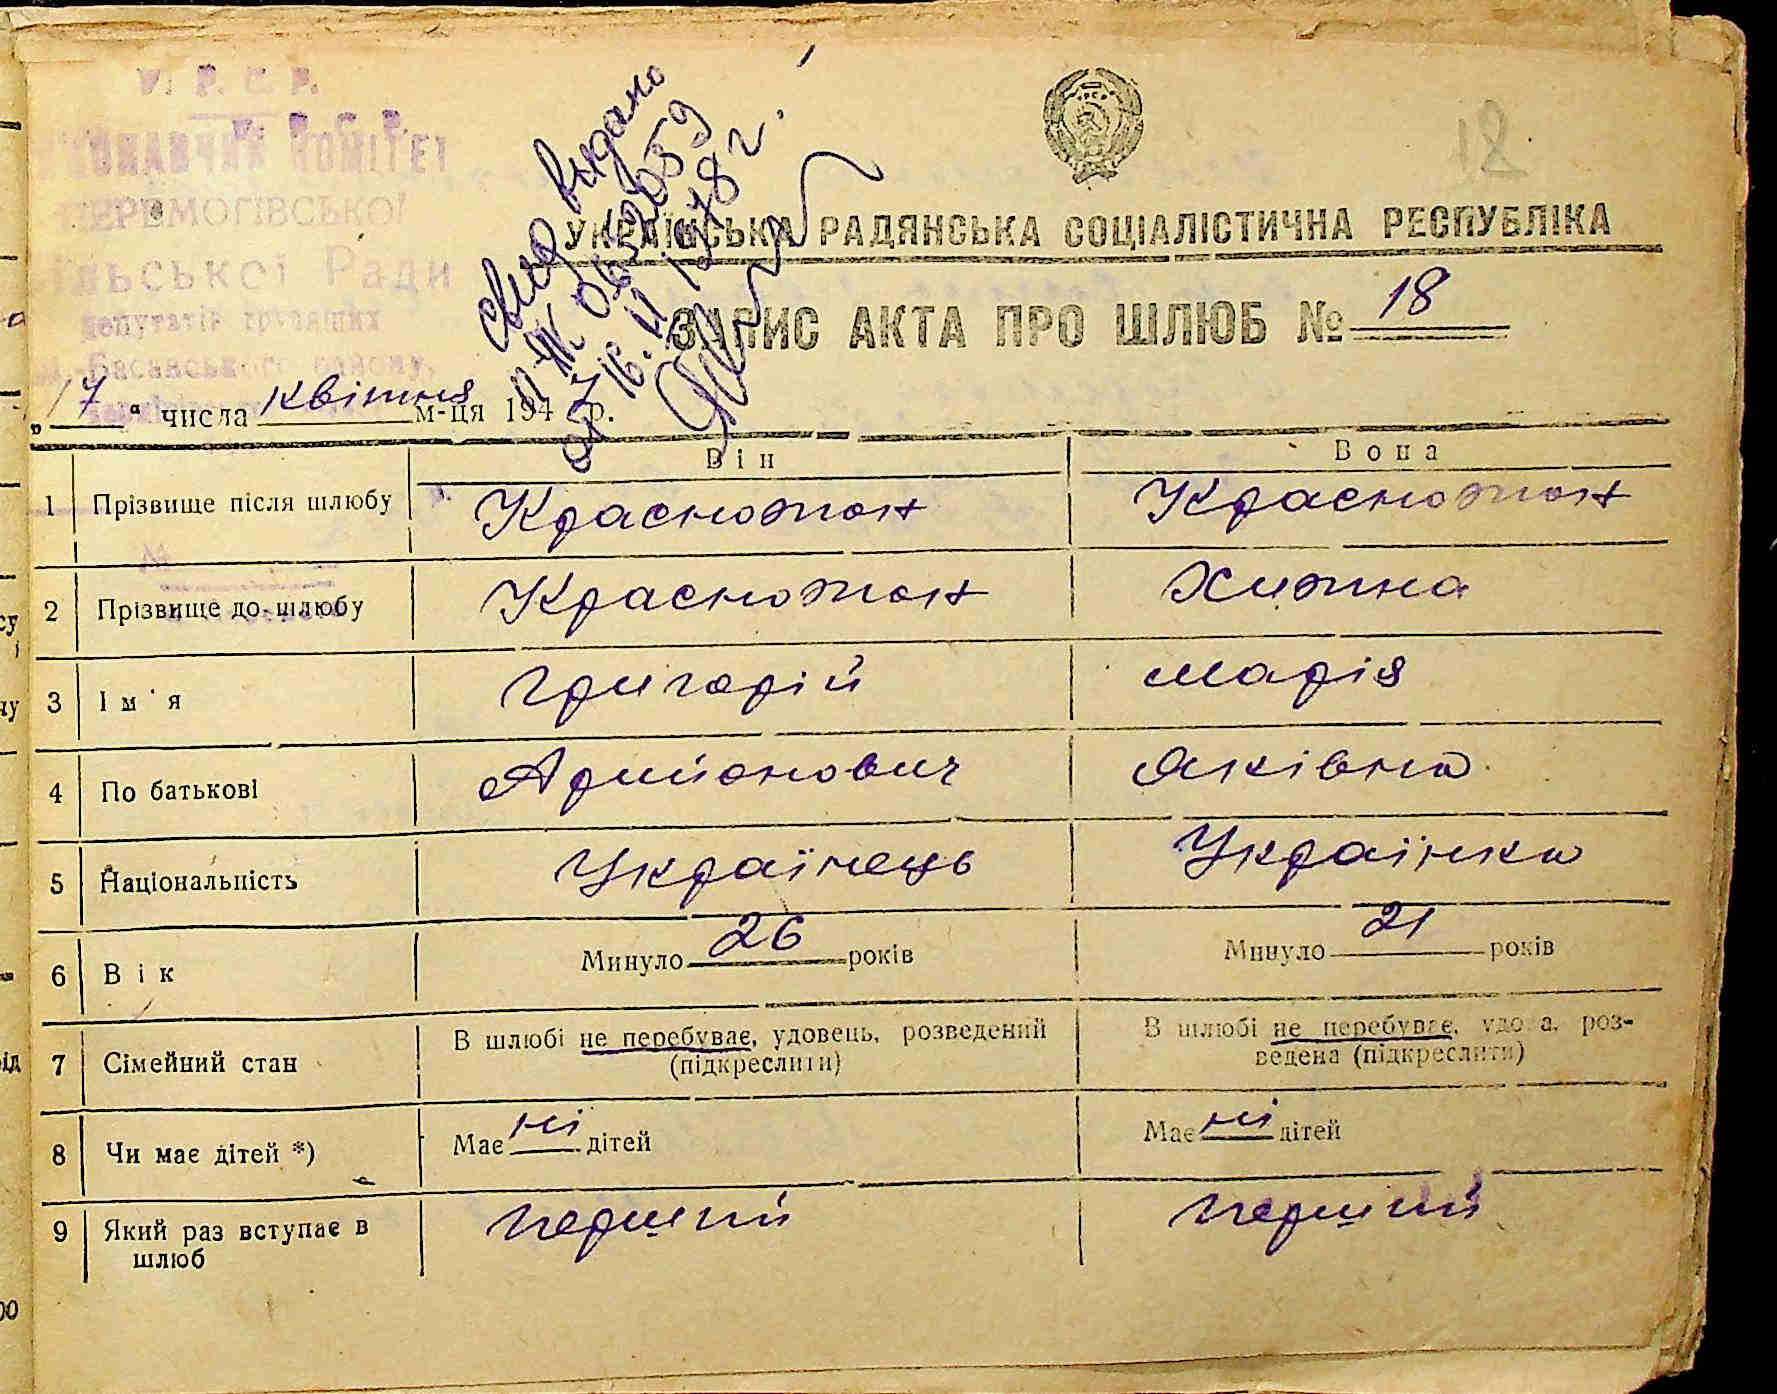 У. Р. С. Р.
У. Р. С. Р.
ВИКОНАВЧИЙ КОМІТЕТ
ПЕРЕМОГІВСЬКОЇ
Сільської Ради
депутатів трудящих
Н.-Басанського району,
свид видано
II-ЯК
от 16.11 1978 г.
18
УКРАЇНСЬКА РАДЯНСЬКА СОЦІАЛІСТИЧНА РЕСПУБЛІКА
ЗАПИС АКТА ПРО ШЛЮБ № 18
„17“ числа квітня м-ця 1947 р.
Він Вона
1 Прізвище після шлюбу Красножон Красножон
2 Прізвище до шлюбу Красножон Хижна
3 Ім'я Григорій Марія
4 По батькові Яківна
5 Національність Українець Українка
6 Вік Минуло 26 років Минуло 21 років
7 Сімейний стан В шлюбі не перебуває, удовець, розведений (підкреслити) В шлюбі не перебуває, удова, роз-
ведена (підкреслити)
8 Чи має дітей *) Має ні дітей Має ні дітей
9 Який раз вступає в шлюб перший перший